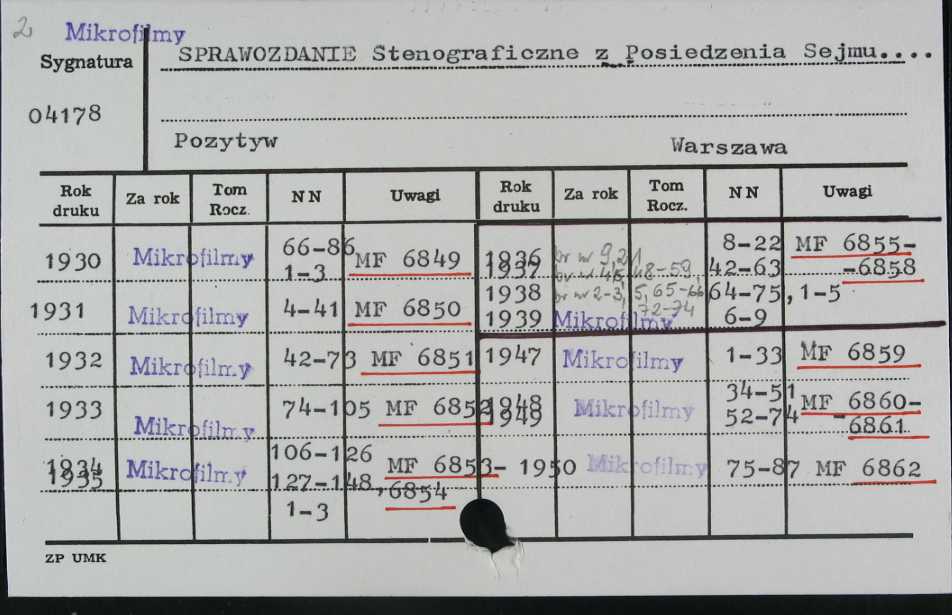 2 Mikrofilmy
Sygnatura
SPRAWOZDANIE Stenograficzne z Posiedzenia Sejmu....
04178
Pozytyw Warszawa
Rok druku Za rok Tom Rocz. NN Uwagi Rok druku Za rok Tom Rocz. NN Uwagi
1930 Mikrofilmy 66-86 1-3 MF 6849
1936 1937 br nr 9,21 br nr 46, 48-59 8-22 42-63 MF 6855- -6858
1938 br nr 2-3, 5, 65-66 72-74 64-75, 1-5
1931 Mikrofilmy 4-41 MF 6850
1939 Mikrofilmy 6-9
1932 Mikrofilmy 42-73 MF 6851
1947 Mikrofilmy 1-33 MF 6859
1933 Mikrofilmy 74-105 MF 6852
1948 1949 Mikrofilmy 34-51 52-74 MF 6860- -6861
1934 1935 Mikrofilmy 106-126 127-148, 1-3 MF 6853- 6854
1950 Mikrofilmy 75-87 MF 6862
ZP UMK